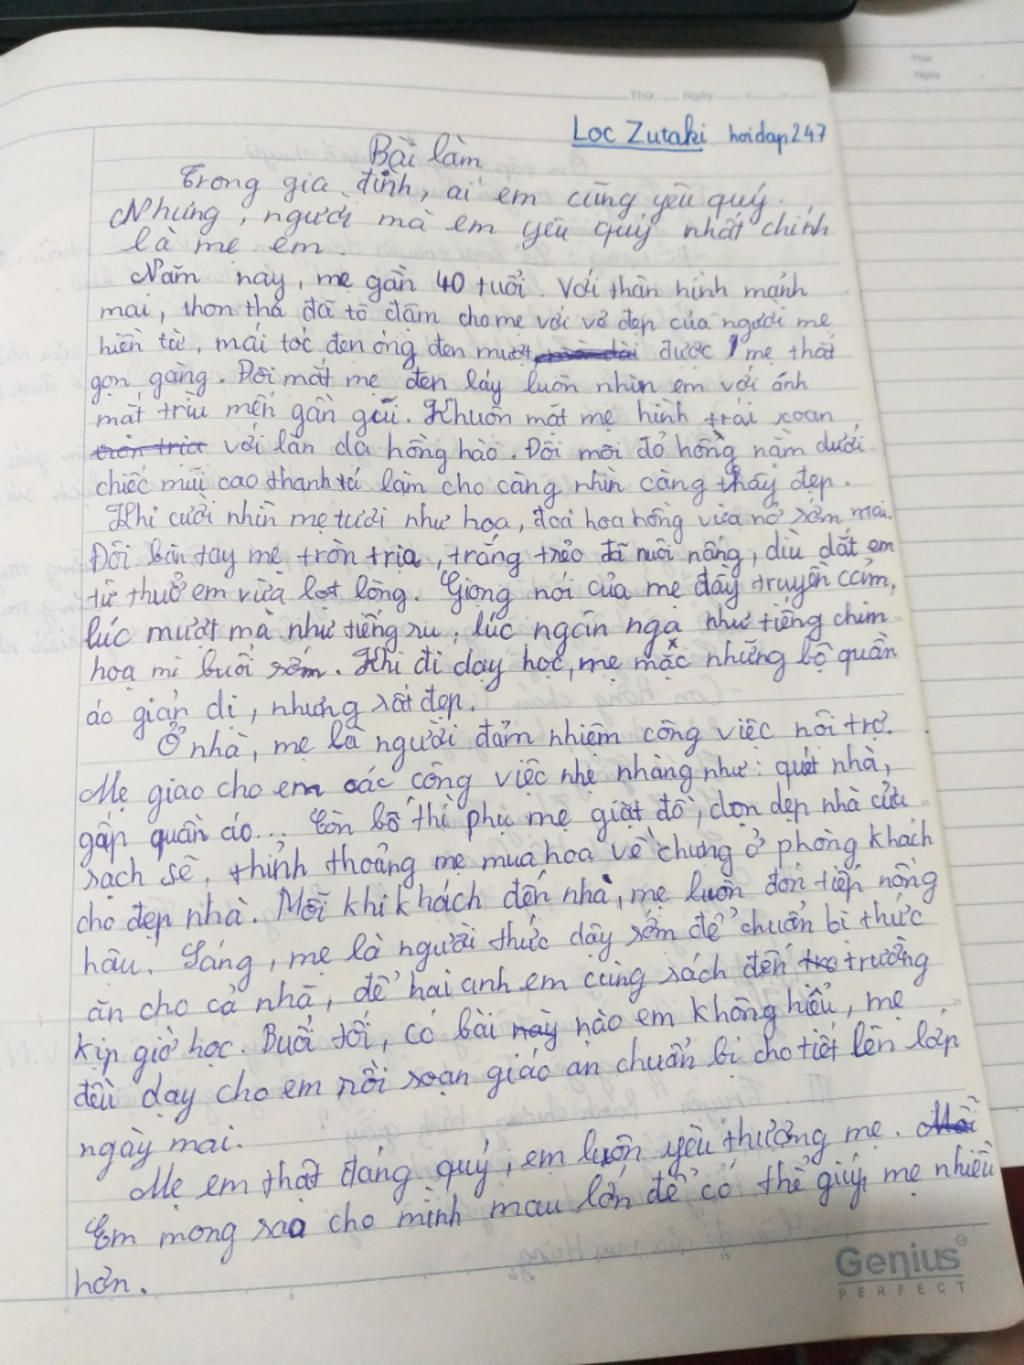 Thứ
Ngày
Thứ Ngày
Loc Zutaki hoidap247
Bài làm
Trong gia đình, ai em cũng yêu quý.
Nhưng, người mà em yêu quý nhất chính
là mẹ em.
Năm nay, mẹ gần 40 tuổi. Với thân hình mảnh
mai, thon thả đã tô đậm cho mẹ với vẻ đẹp của người mẹ
hiền từ, mái tóc đen óng đen mượt được mẹ thắt
gọn gàng. Đôi mắt mẹ đen láy luôn nhìn em với ánh
mắt trìu mến gần gũi. Khuôn mặt mẹ hình trái xoan
tròn trịa với làn da hồng hào. Đôi môi đỏ hồng nằm dưới
chiếc mũi cao thanh tú làm cho càng nhìn càng thấy đẹp.
Khi cười nhìn mẹ tươi như hoa, đoá hoa hồng vừa nở sớm mai.
Đôi bàn tay mẹ tròn trịa, trắng trẻo đã nuôi nấng, dìu dắt em
từ thuở em vừa lọt lòng. Giọng nói của mẹ đầy truyền cảm,
lúc mượt mà như tiếng ru, lúc ngân nga như tiếng chim
hoạ mi buổi sớm. Khi đi dạy học, mẹ mặc những bộ quần
áo giản dị, nhưng rất đẹp.
Ở nhà, mẹ là người đảm nhiệm công việc nội trợ.
Mẹ giao cho em các công việc nhẹ nhàng như: quét nhà,
gấp quần áo... Còn bố thì phụ mẹ giặt đồ, dọn dẹp nhà cửa
sạch sẽ. thỉnh thoảng mẹ mua hoa về chưng ở phòng khách
cho đẹp nhà. Mỗi khi khách đến nhà, mẹ luôn đón tiếp nồng
hậu. Sáng, mẹ là người thức dậy sớm để chuẩn bị thức
ăn cho cả nhà, để hai anh em cùng xách đến tro trường
kịp giờ học. Buổi tối, có bài này nào em không hiểu, mẹ
đều dạy cho em rồi soạn giáo án chuẩn bị cho tiết lên lớp
ngày mai.
Mẹ em thật đáng quý, em luôn yêu thương mẹ.
Em mong sao cho mình mau lớn để có thể giúp mẹ nhiều
hơn.
Genius
PERFECT